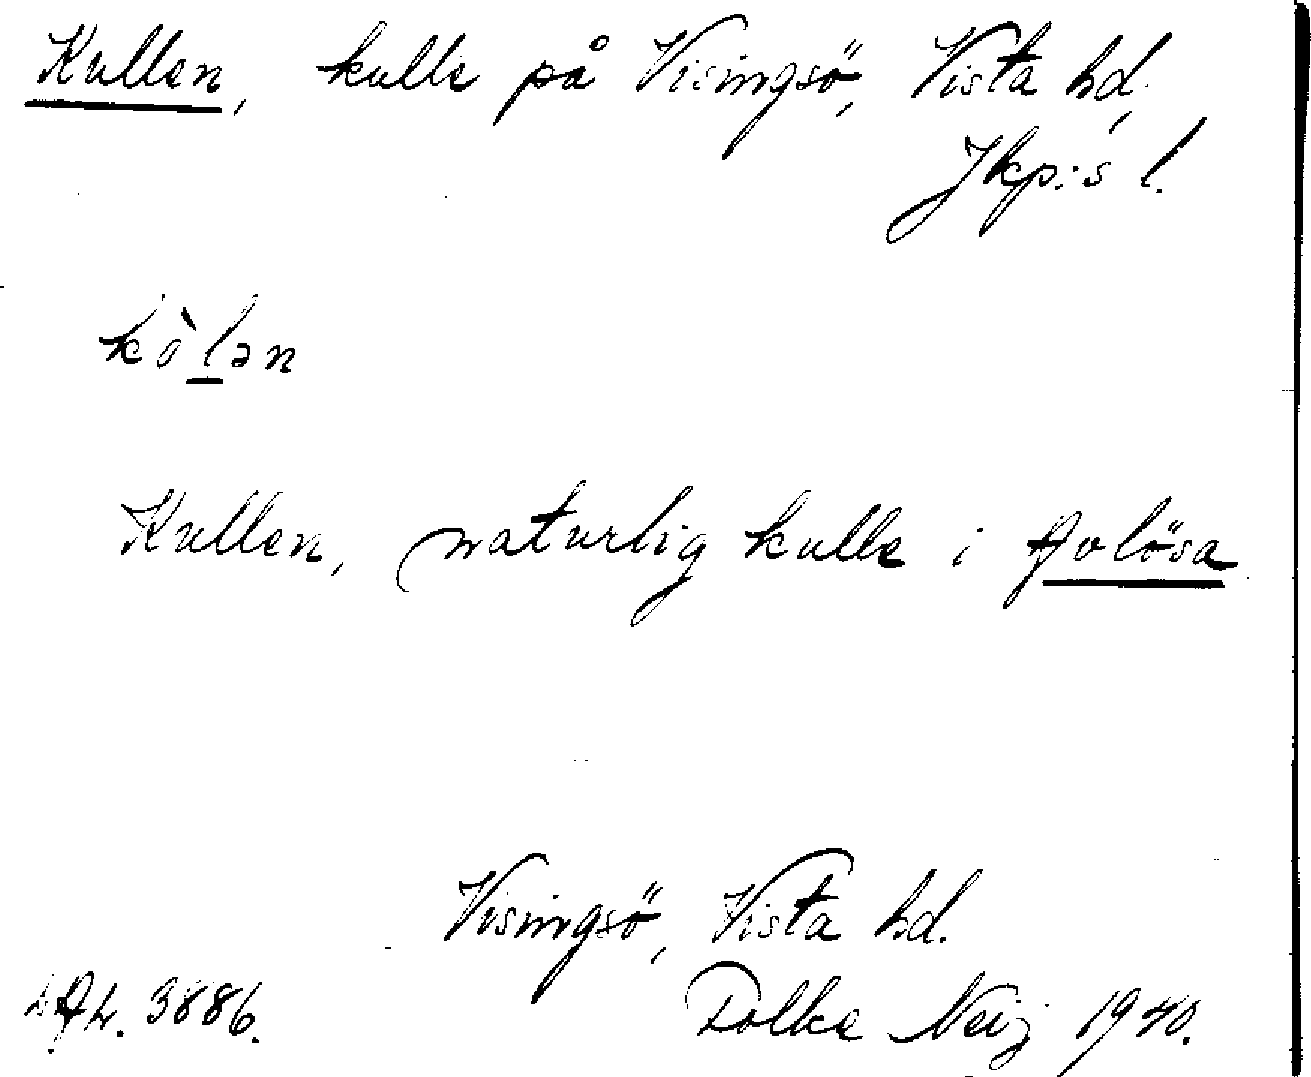 Kullen, kulle på Visingsö, Vista hd,
Jkp:s l.
kòlən
Kullen, naturlig kulle i Avlösa
Visingsö, Vista hd.
3886. Folke Neij 1940.